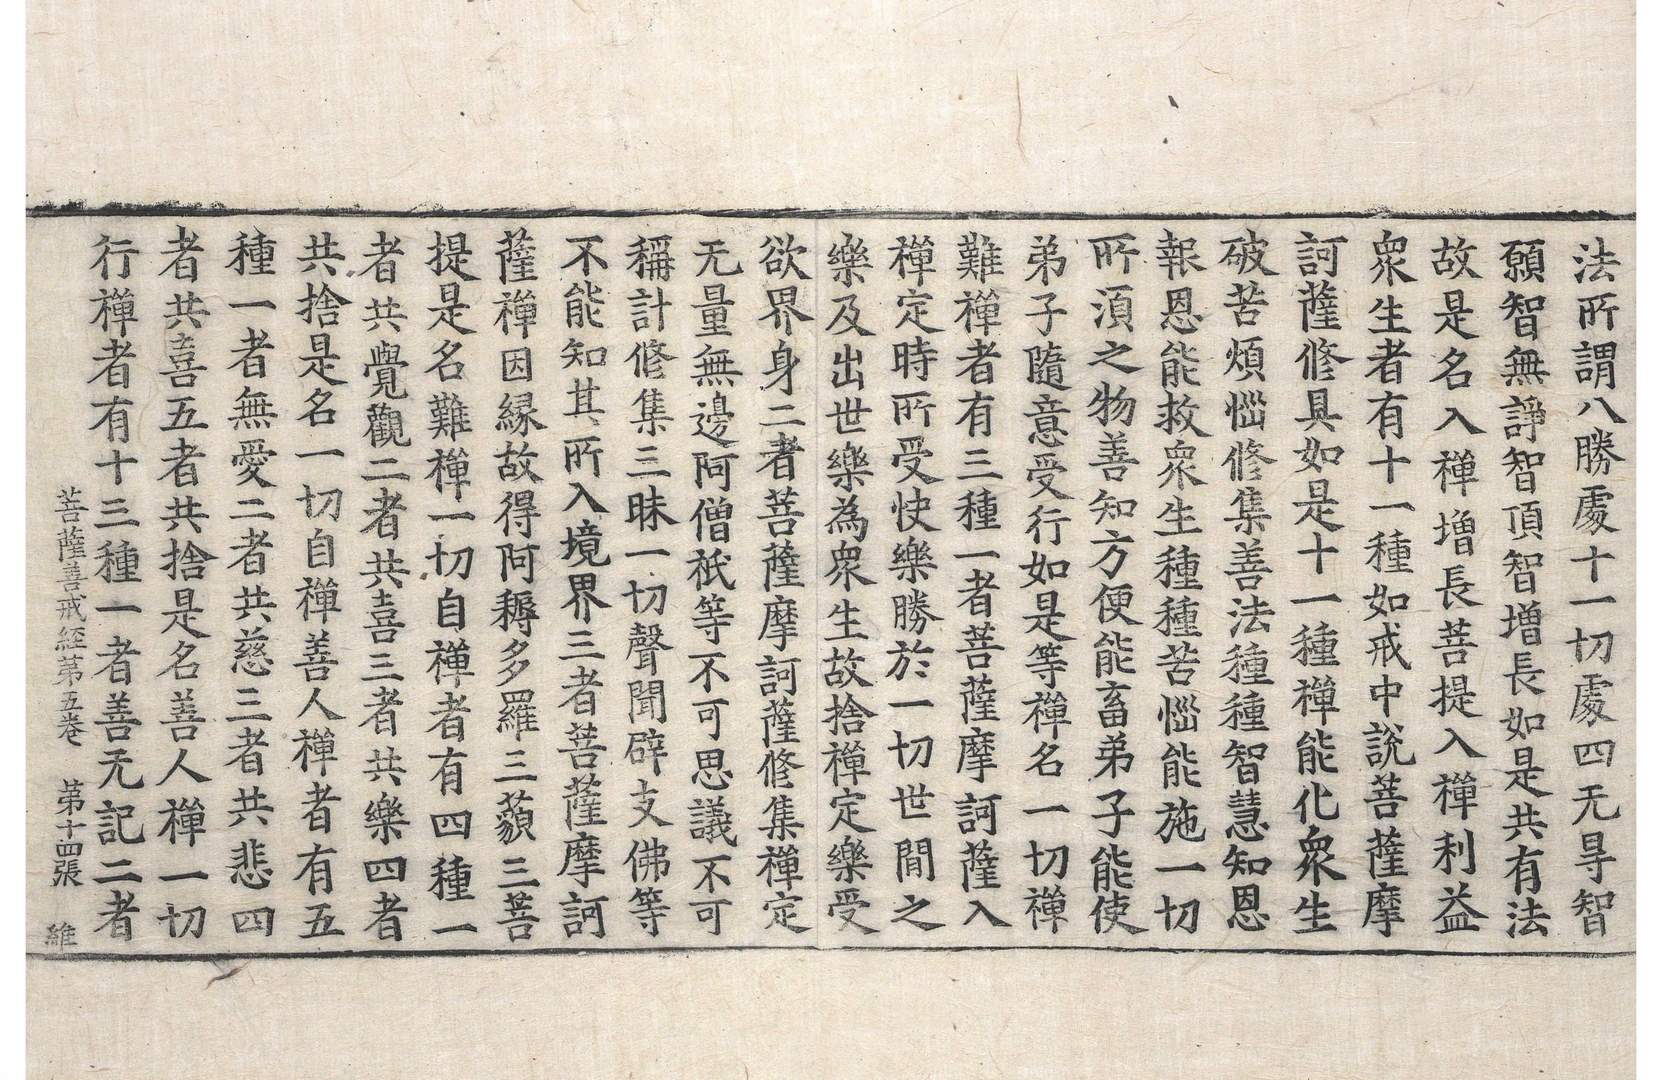 法所謂八勝處十一切處四无㝵智
願智無諍智頂智增長如是共有法
故是名入禪增長菩提入禪利益
衆生者有十一種如戒中說菩薩摩
訶薩修具如是十一種禪能化衆生
破苦煩惱修集善法種種智慧知恩
報恩能救衆生種種苦惱能施一切
所湏之物善知方便能畜弟子能使
弟子隨意受行如是等禪名一切禪
難禪者有三種一者菩薩摩訶薩入
禪定時所受快樂勝於一切世閒之
樂及出世樂為衆生故捨禪定樂受
欲界身二者菩薩摩訶薩修集禪定
无量無邊阿僧祇等不可思議不可
稱計修集三昧一切聲聞辟支佛等
不能知其所入境界三者菩薩摩訶
薩禪因緣故得阿耨多羅三藐三菩
提是名難禪一切自禪者有四種一
者共覺觀二者共喜三者共樂四者
共捨是名一切自禪善人禪者有五
種一者無愛二者共慈三者共悲四
者共喜五者共捨是名善人禪一切
行禪者有十三種一者善无記二者
菩薩善戒經第五卷 第十四張 維